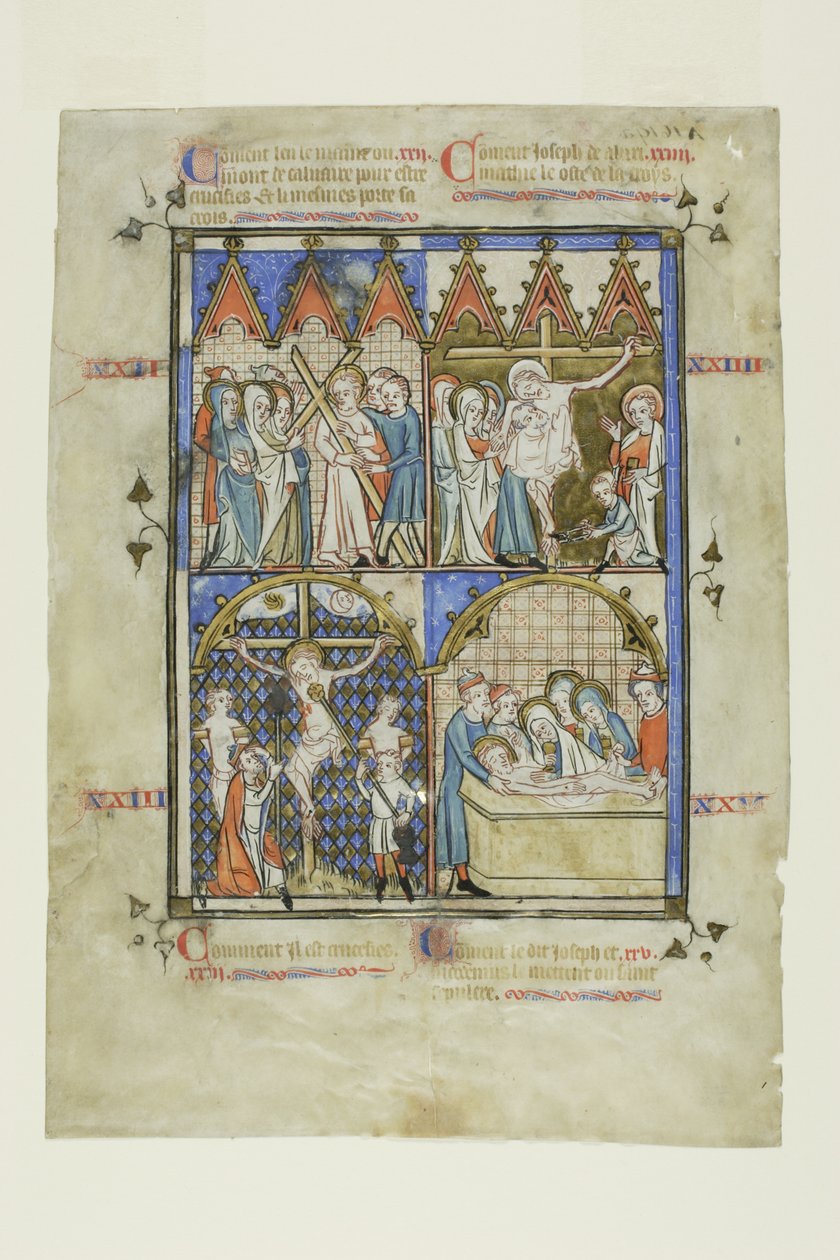 Coment len le maine ou .xxii.
mont de calvaire pour estre
crucefies Et li mesmes porte sa
crois.
Coment Joseph de .xxiiii.
mathie le oste de la croys.
XXII
XXIIII
XXIII
XXV
Comment Il est crucefies.
.xxiii.
Coment le dit Joseph et .xxv.
le mettent ou saint
sepulcre.